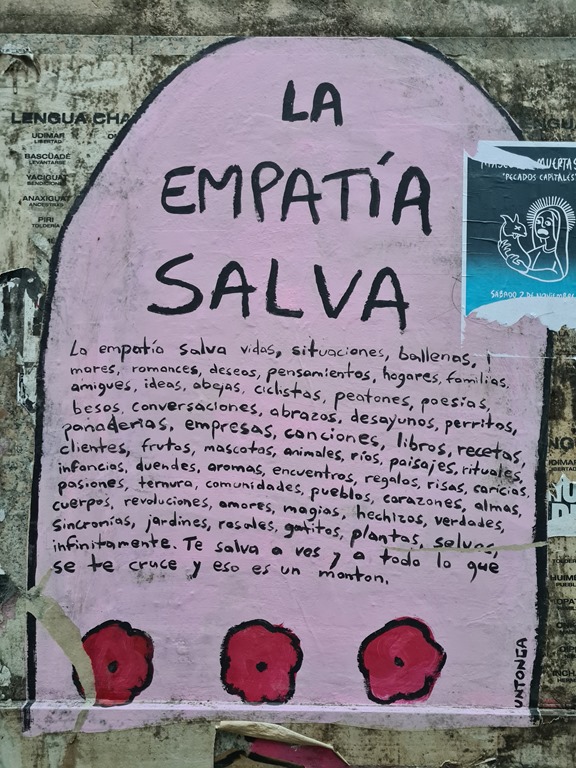 LA
EMPATÍA
SALVA
La empatía salva vidas, situaciones, ballenas,
mares, romances, deseos, pensamientos, hogares, familias,
amigues, ideas, abejas, ciclistas, peatones, poesías,
besos, conversaciones, abrazos, desayunos, perritos,
panaderías, empresas, canciones, libros, recetas,
clientes, frutos, mascotas, animales, ríos, paisajes, rituales,
infancias, duendes, aromas, encuentros, regalos, risas, caricias,
pasiones, ternura, comunidades, pueblos, corazones, almas,
cuerpos, revoluciones, amores, magias, hechizos, verdades,
sincronías, jardines, rosales, gatitos, plantas, selvas,
infinitamente. Te salva a vos y a todo lo que
se te cruce y eso es un montón.
UNTONGA
LENGUA CHA
UDIMAR
LIBERTAD
BASCÜADE
LEVANTARSE
YACIGUAT
BENDICIONES
ANAXIGUAT
ANCESTRAS
PIRI
TOLDERIA
MUERTAS
"PECADOS CAPITALES"
SABADO 7 DE NOVIEMBRE